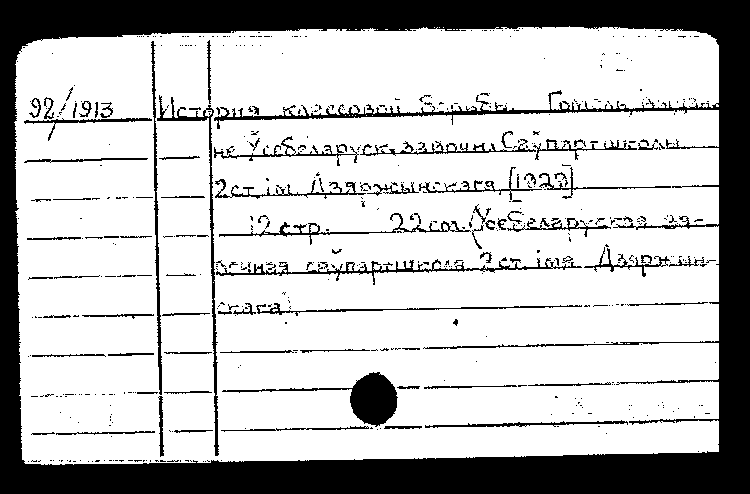 92/1913 История классовой борьбы. Гомель, Выдан-
не Ўсебеларуск. завочн. Саўпартшколы
2 ст. ім. Дзяржынскага, [1929]
12 стр. 22 см. (Усебеларуская за-
вочная саўпартшкола 2 ст. імя Дзяржын-
скага).